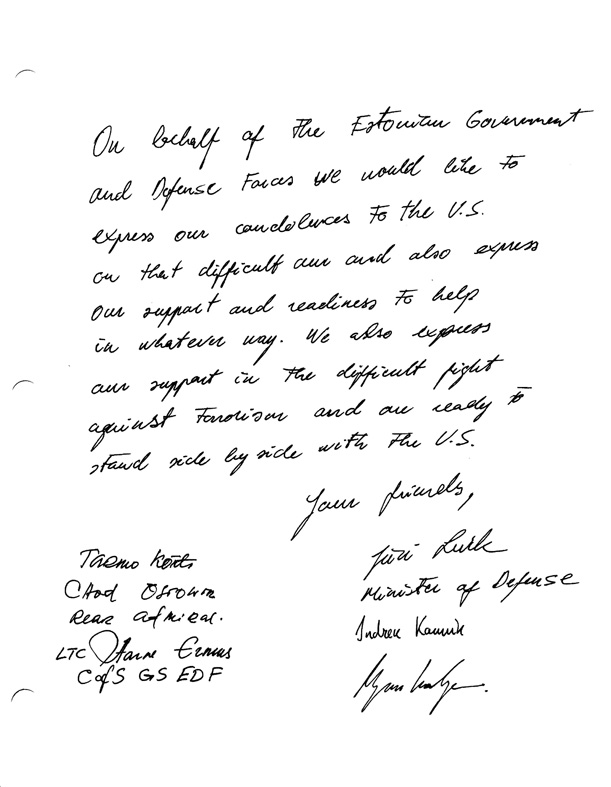 On behalf of the Estonian Government
and Defense Forces we would like to
express our condolences to the U.S.
on that difficult our and also express
our support and readiness to help
in whatever way. We also express
our support in the difficult fight
against Terrorism and are ready to
stand side by side with the U.S.
Your friends,
Jüri Luik
Minister of Defense
Indrek Kannik
Tarmo Kõuts
CHoD Estonia
Rear Admiral.
LTC Aarne Ermus
CofS GS EDF